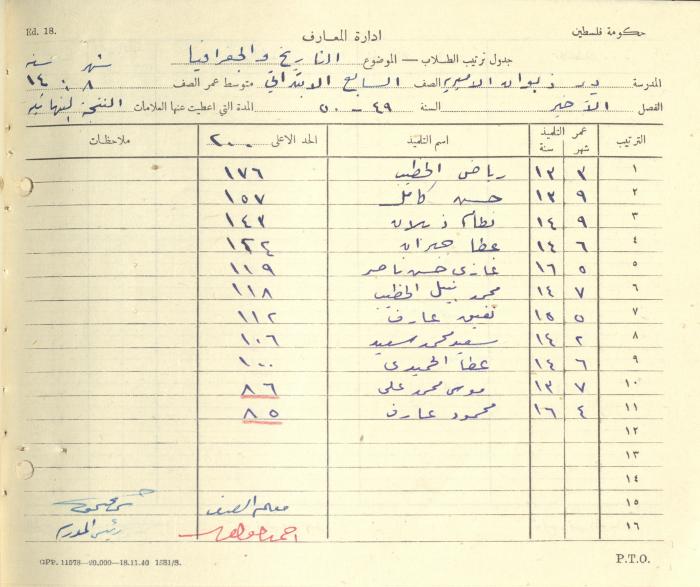 Ed. 18.
حكومة فلسطين
ادارة المعارف
جدول ترتيب الطلاب — الموضوع التاريخ والجغرافيا شهر سنة
المدرسة الاميرية الصف السابع الابتدائي متوسط عمر الصف ٨ : ١٤
الفصل الأخير السنة ٤٩ - ٥٠ المدة التي اعطيت عنها العلامات النتيجة النهائية
الترتيب عمر التلميذ شهر سنة اسم التلميذ الحد الاعلى ٢٠٠ ملاحظات
١ ٣ ١٣ رياض الخطيب ١٧٦
٢ ٩ ١٣ حسن كامل ١٥٧
٣ ٩ ١٤ نظام ١٤٣
٤ ٦ ١٤ عطا جبران ١٢٤
٥ ٥ ١٦ غازي حسن ناصر ١١٩
٦ ٧ ١٤ محمد نبيل الخطيب ١١٨
٧ ٥ ١٥ عارف ١١٢
٨ ٢ ١٤ سعيد محمد سعيد ١٠٦
٩ ٦ ١٤ عطا الحميدي ١٠٠
١٠ ٧ ١٣ موسى محمد علي ٨٦
١١ ٤ ١٦ محمود عارف ٨٥
١٢
١٣
١٤
١٥ معلم الصف
١٦ احمد
G.P.P. 11578—20.000—18.11.40 1581/S.
P.T.O.